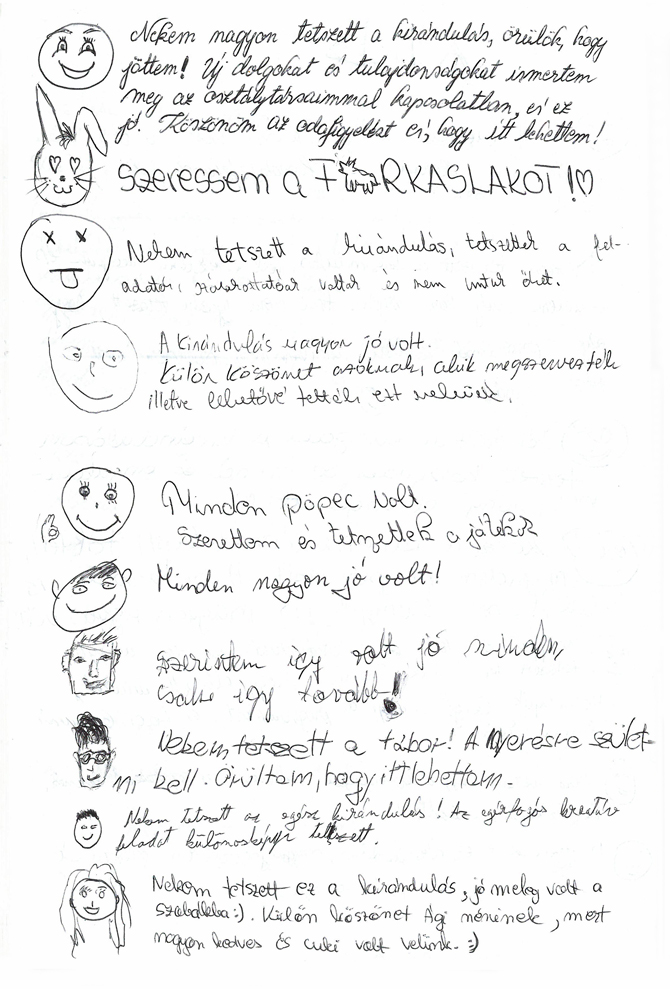 Nekem nagyon tetszett a kirándulás, örülök, hogy
jöttem! Új dolgokat és tulajdonságokat ismertem
meg az osztálytársaimmal kapcsolatban, és ez
jó. Köszönöm az odafigyelést és, hogy itt lehettem!
Szeressem a FARKASLAKOT!♡
Nekem tetszett a kirándulás, tetszettek a fel-
adatok, szórakoztatóak voltak és nem untuk őket.
A kirándulás nagyon jó volt.
Külön köszönet azoknak, akik megszervezték
illetve lehetővé tették ezt nekünk.
Minden pöpec volt.
Szerettem és tetszettek a játékok
Minden nagyon jó volt!
Szerintem így volt jó minden,
csak így tovább!
Nekem tetszett a tábor! A nyerésre szület-
ni kell. Örültem, hogy itt lehettem.
Nekem tetszett az egész kirándulás! Az egérfogós kreatív
feladat különösképp tetszett.
Nekem tetszett ez a kirándulás, jó meleg volt a
szobákba:). Külön köszönet Ági néninek, mert
nagyon kedves és cuki volt velünk. :)